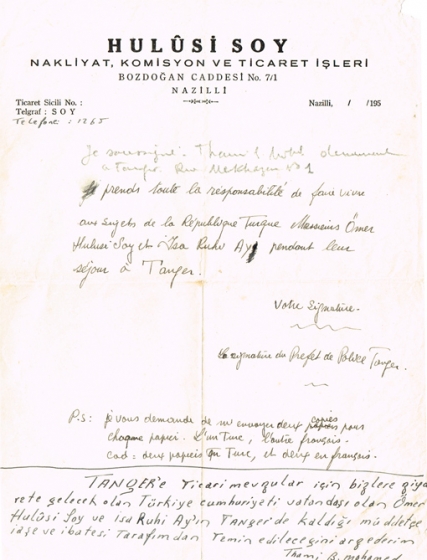 HULÛSİ SOY
NAKLİYAT, KOMİSYON VE TİCARET İŞLERİ
BOZDOĞAN CADDESİ No. 7/1
NAZİLLİ
Ticaret Sicili No. :
Telgraf : SOY
Telefone : 1265
Nazilli, / /195
Je soussigné. Thami demeurant
à Tanger. Rue
Je prends toute la responsabilité de faire vivre
aux sujets de la République Turque Messieurs Ömer
Hulusi Soy et Isa Ruhi Ay pendant leur
séjour à Tanger.
Votre Signature.
La signature du Prefet de Police Tanger.
P.S: je vous demande de m'envoyer deux copies pour
chaque papier. L'un Turc, l'autre français.
cad = deux papiers en Turc, et deux en français.
TANGER'e ticari mevzular için bizlere ziya
rete gelecek olan Türkiye cumhuriyeti vatandaşı olan Ömer
Hulûsi Soy ve isa Ruhi Ay'ın TANGER'de kaldığı müddetçe
iaşe ve ibatesi tarafımdan Temin edileceğini arzederim
Thami B. mohamed